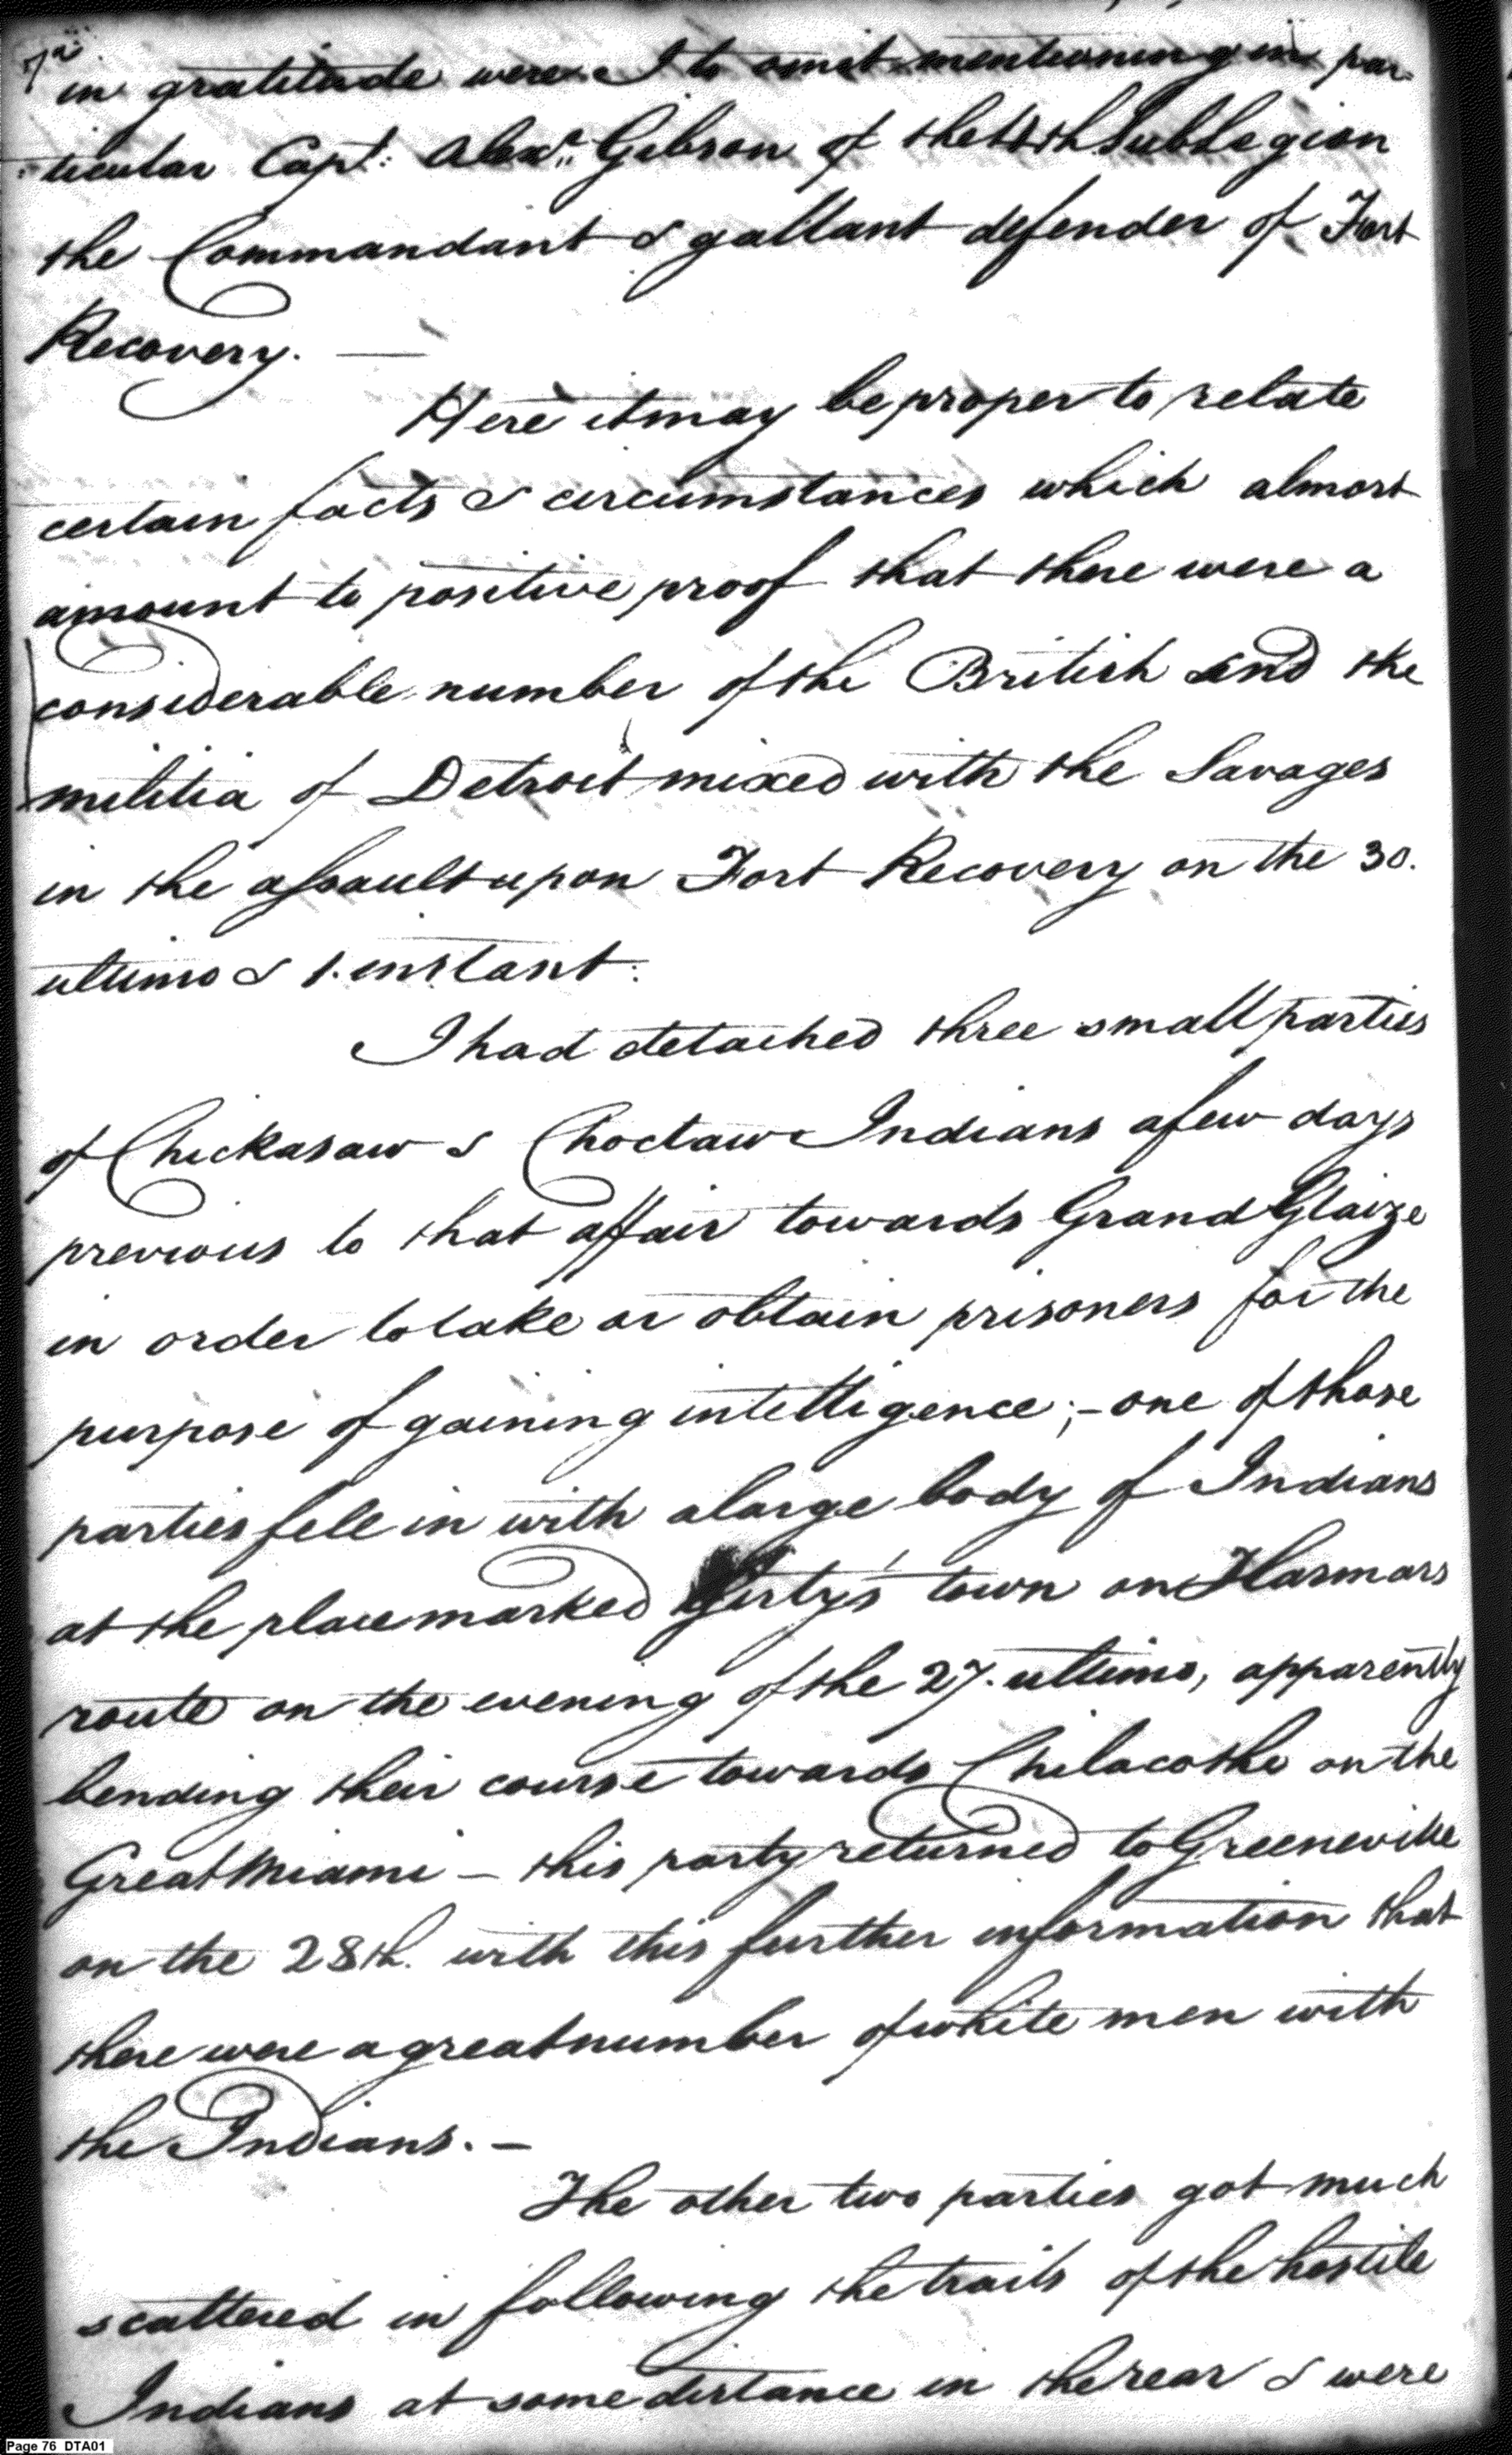 7a
in gratitude were I to omit mentioning in par-
:ticular Capt: Alexr. Gibson of the 4th Sub Legion
the Commandant & gallant defender of Fort
Recovery. —
Here it may be proper to relate
certain facts & circumstances which almost
amount to positive proof that there were a
considerable number of the British and the
militia of Detroit mixed with the Savages
in the assault upon Fort Recovery on the 30.
ultimo & 1. instant:
I had detached three small parties
of Chickasaw & Choctaw Indians a few days
previous to that affair towards Grand Glaize
in order to take or obtain prisoners for the
purpose of gaining intelligence;- one of those
parties fell in with a large body of Indians
at the place marked Girty's town on Harmars
route on the evening of the 27. ultimo, apparently
bending their course towards Chilacothe on the
Great Miami - this party returned to Greeneville
on the 28th. with this further information that
there were a great number of white men with
the Indians. -
The other two parties got much
scattered in following the trails of the hostile
Indians at some distance in the rear & were
Page 76 DTA01